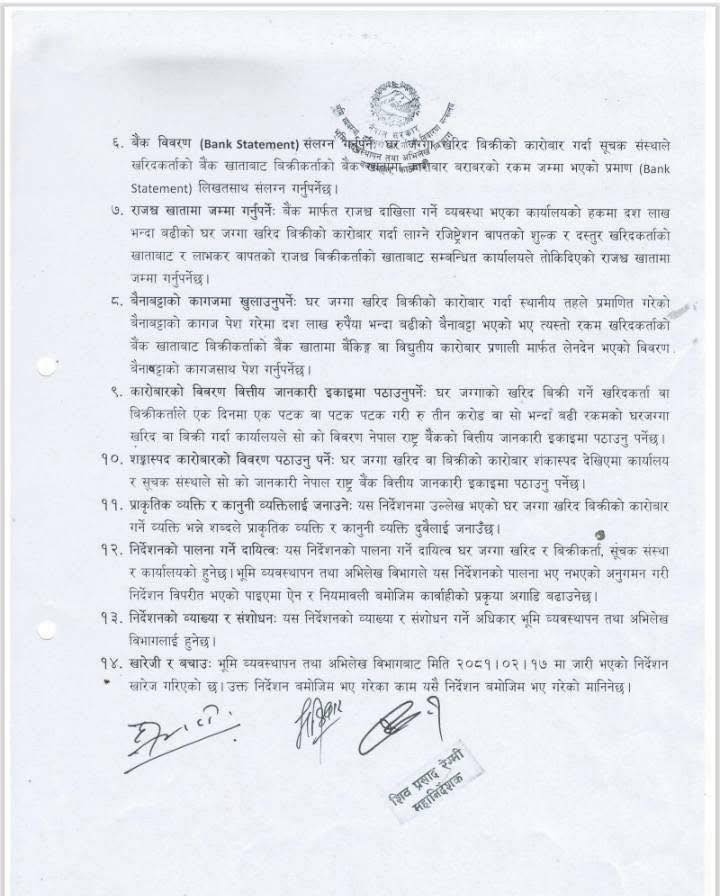 नेपाल सरकार
६. बैंक विवरण (Bank Statement) संलग्न गर्नुपर्नेः घर जग्गा खरिद बिक्रीको कारोबार गर्दा सूचक संस्थाले
खरिदकर्ताको बैंक खाताबाट बिक्रीकर्ताको बैंक खातामा कारोबार बराबरको रकम जम्मा भएको प्रमाण (Bank
Statement) लिखतसाथ संलग्न गर्नुपर्नेछ।
७. राजश्व खातामा जम्मा गर्नुपर्नेः बैंक मार्फत राजश्व दाखिला गर्ने व्यवस्था भएका कार्यालयको हकमा दश लाख
भन्दा बढीको घर जग्गा खरिद बिक्रीको कारोबार गर्दा लाग्ने रजिष्ट्रेशन बापतको शुल्क र दस्तुर खरिदकर्ताको
खाताबाट र लाभकर बापतको राजश्व बिक्रीकर्ताको खाताबाट सम्बन्धित कार्यालयले तोकिदिएको राजश्व खातामा
जम्मा गर्नुपर्नेछ।
८. बैनाबट्टाको कागजमा खुलाउनुपर्नेः घर जग्गा खरिद बिक्रीको कारोबार गर्दा स्थानीय तहले प्रमाणित गरेको
बैनाबट्टाको कागज पेश गरेमा दश लाख रुपैंया भन्दा बढीको बैनाबट्टा भएको भए त्यस्तो रकम खरिदकर्ताको
बैंक खाताबाट बिक्रीकर्ताको बैंक खातामा बैंकिङ्ग वा विद्युतीय कारोबार प्रणाली मार्फत लेनदेन भएको विवरण
बैनाबट्टाको कागजसाथ पेश गर्नुपर्नेछ।
९. कारोबारको विवरण वित्तीय जानकारी इकाइमा पठाउनुपर्नेः घर जग्गाको खरिद बिक्री गर्ने खरिदकर्ता वा
बिक्रीकर्ताले एक दिनमा एक पटक वा पटक पटक गरी रु तीन करोड वा सो भन्दा बढी रकमको घरजग्गा
खरिद वा बिक्री गर्दा कार्यालयले सो को विवरण नेपाल राष्ट्र बैंकको वित्तीय जानकारी इकाइमा पठाउनु पर्नेछ।
१०. शङ्कास्पद कारोबारको विवरण पठाउनु पर्नेः घर जग्गा खरिद वा बिक्रीको कारोबार शंकास्पद देखिएमा कार्यालय
र सूचक संस्थाले सो को जानकारी नेपाल राष्ट्र बैंक वित्तीय जानकारी इकाइमा पठाउनु पर्नेछ।
११. प्राकृतिक व्यक्ति र कानुनी व्यक्तिलाई जनाउनेः यस निर्देशनमा उल्लेख भएको घर जग्गा खरिद बिक्रीको कारोबार
गर्ने व्यक्ति भन्ने शब्दले प्राकृतिक व्यक्ति र कानुनी व्यक्ति दुवैलाई जनाउँछ।
१२. निर्देशनको पालना गर्ने दायित्वः यस निर्देशनको पालना गर्ने दायित्व घर जग्गा खरिद र बिक्रीकर्ता, सूचक संस्था
र कार्यालयको हुनेछ। भूमि व्यवस्थापन तथा अभिलेख विभागले यस निर्देशनको पालना भए नभएको अनुगमन गरी
निर्देशन विपरीत भएको पाइएमा ऐन र नियमावली बमोजिम कार्वाहीको प्रकृया अगाडि बढाउनेछ।
१३. निर्देशनको व्याख्या र संशोधनः यस निर्देशनको व्याख्या र संशोधन गर्ने अधिकार भूमि व्यवस्थापन तथा अभिलेख
विभागलाई हुनेछ।
१४. खारेजी र बचाउः भूमि व्यवस्थापन तथा अभिलेख विभागबाट मिति २०८१।०२।१७ मा जारी भएको निर्देशन
खारेज गरिएको छ। उक्त निर्देशन बमोजिम भए गरेका काम यसै निर्देशन बमोजिम भए गरेको मानिनेछ।
शिव प्रसाद रेग्मी
महानिर्देशक